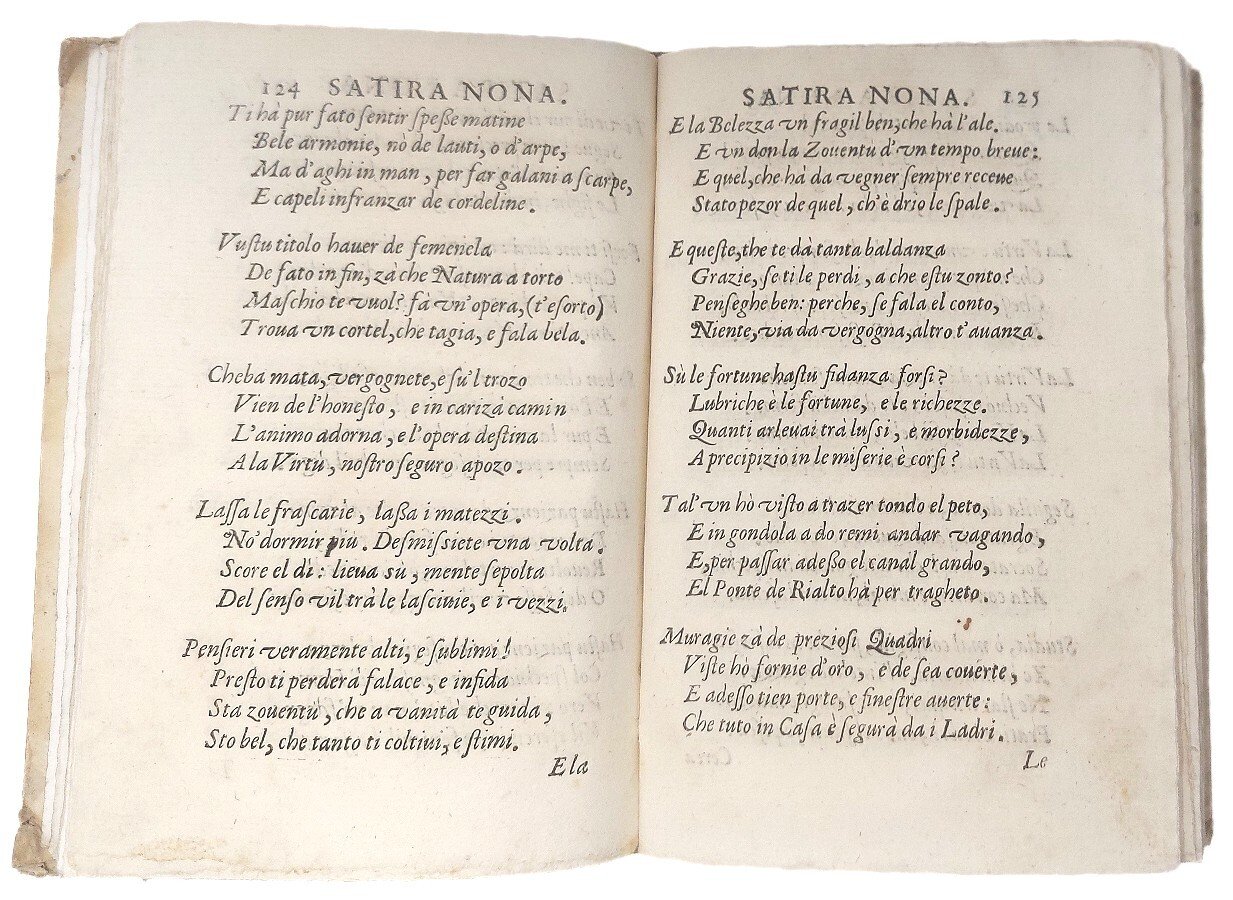 124 SATIRA NONA.
Ti hà pur fato ſentir ſpeſſe matine
Bele armonie, nò de lauti, o d'arpe,
Ma d'aghi in man, per far galani a ſcarpe,
E capeli infranzar de cordeline.
Vuſtu titolo hauer de femenela
De fato in fin, zà che Natura a torto
Maſchio te vuol? fà vn'opera, (t'eſorto)
Troua vn cortel, che tagia, e fala bela.
Cheba mata, vergognete, e ſu'l trozo
Vien de l'honeſto, e in carizà camin
L'animo adorna, e l'opera deſtina
A la Virtù, noſtro ſeguro apozo.
Laſſa le fraſcarie, laſſa i matezzi.
No' dormir più. Deſmiſſiete vna volta.
Score el dì: lieua sù, mente ſepolta
Del ſenſo vil trà le laſciuie, e i vezzi.
Penſieri veramente alti, e ſublimi!
Preſto ti perderà falace, e infida
Sta zouentù, che a vanità te guida,
Sto bel, che tanto ti coltiui, e ſtimi.
E la
SATIRA NONA. 125
E la Belezza vn fragil ben, che hà l'ale.
E vn don la Zouentù d'vn tempo breue:
E quel, che hà da vegner ſempre receue
Stato pezor de quel, ch'è drio le ſpale.
E queſte, the te dà tanta baldanza
Grazie, ſe ti le perdi, a che eſtu zonto?
Penſeghe ben: perche, ſe fala el conto,
Niente, via da vergogna, altro t'auanza.
Sù le fortune haſtu fidanza forſi?
Lubriche è le fortune, e le richezze.
Quanti arleuai trà luſſi, e morbidezze,
A precipizio in le miſerie è corſi?
Tal'vn hò viſto a trazer tondo el peto,
E in gondola a do remi andar vagando,
E, per paſſar adeſſo el canal grando,
El Ponte de Rialto hà per tragheto.
Muragie zà de prezioſi Quadri
Viſte hò fornie d'oro, e de ſea couerte,
E adeſſo tien porte, e fineſtre auerte:
Che tuto in Caſa è ſegurà da i Ladri.
Le